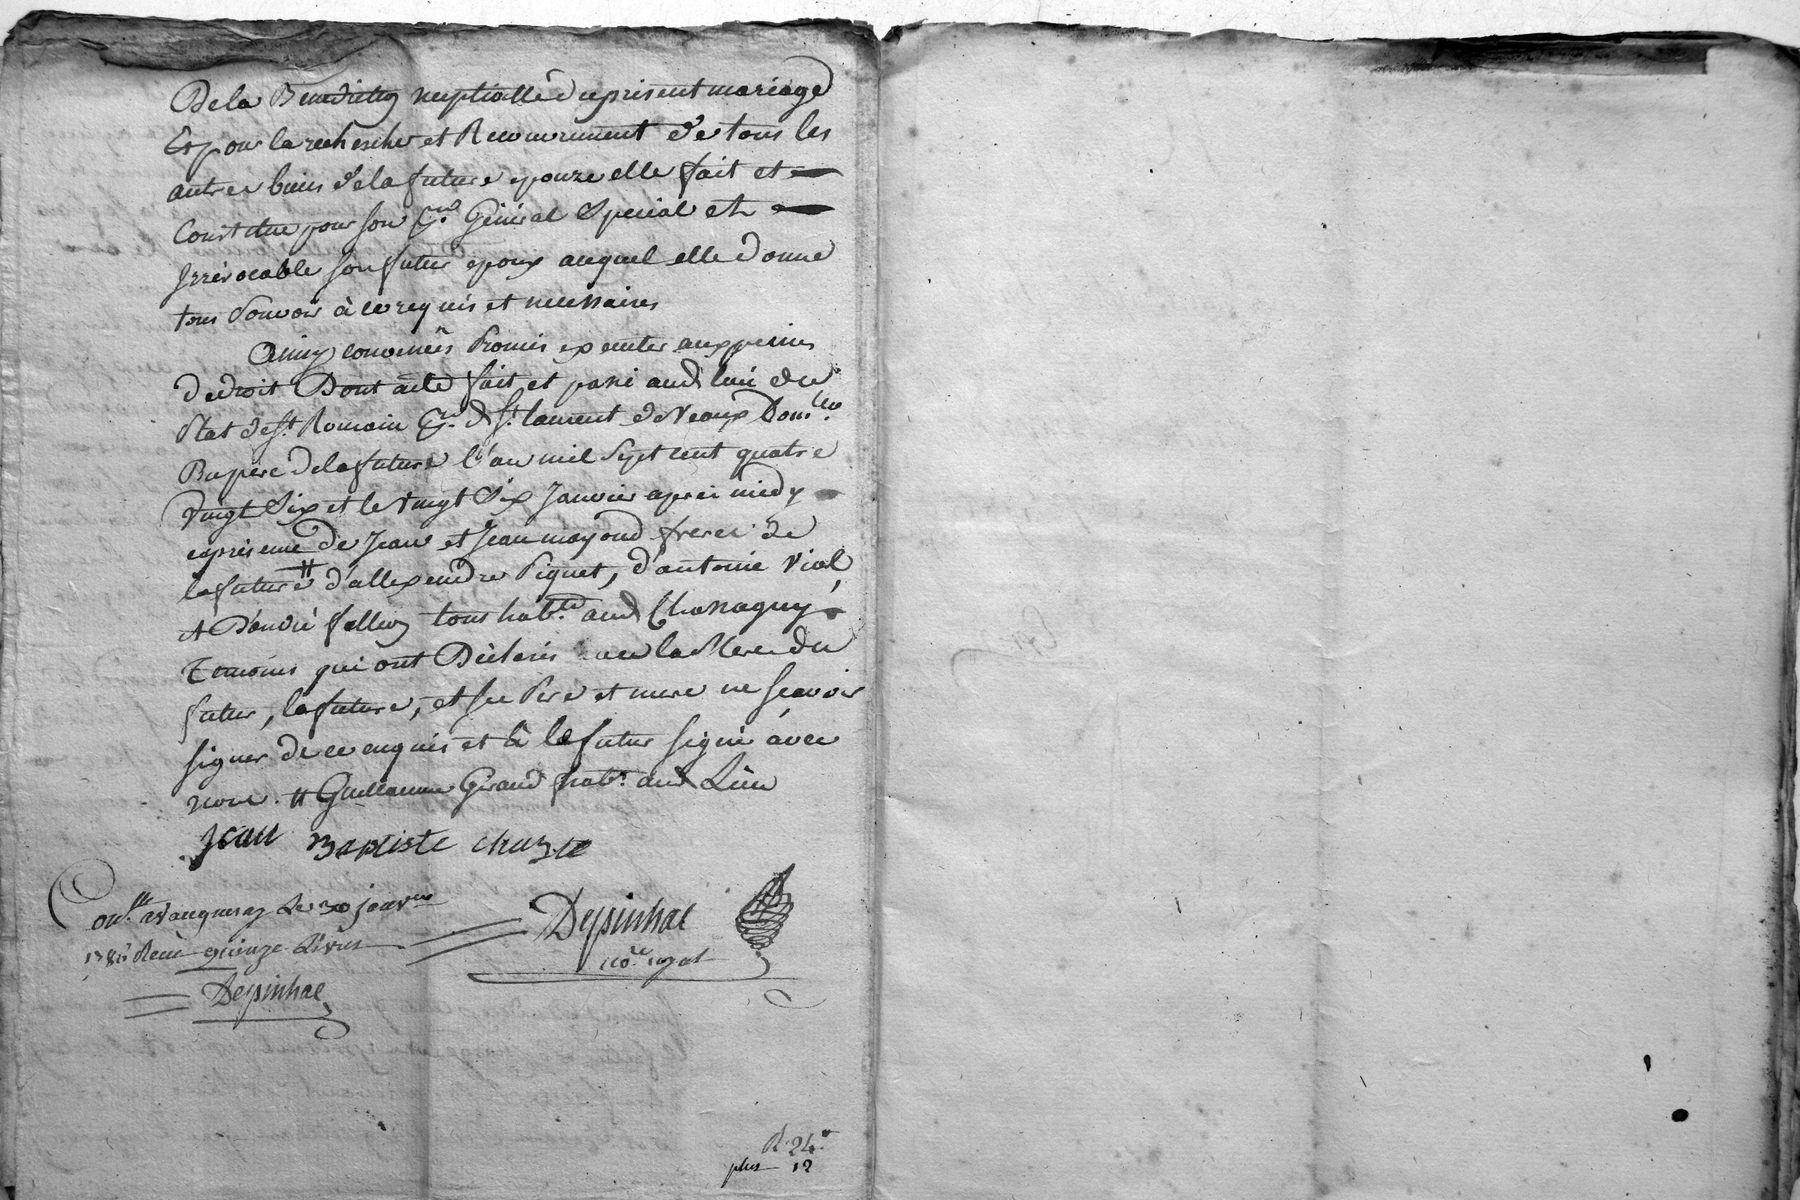 De la Benediction nuptialle du present mariage
Et pour la recherche et Recouvrement de tous les
autres biens de la future epouze elle fait et
Constitue pour son Gnal Général Special et
Irrévocable son futur epoux auquel elle donne
tous Pouvoir à ce requis et necessaires
Ainsy convenües Promis executer aux peines
de droit Dont acte fait et passé aud lieu de
Plat de St. Romain St. laurent de Veaux Domlle
Du père de la future l'an mil Sept cent quatre
Vingt Six et le Vingt Six Janvier après midy
en présence de Jean et Jean mayoud freres de
la future # d'allexendre Piquet, d'antoine Viel
et D'andré fellion tous habts. aud Chassagny
Temoins qui ont Déclarés avec la Mere du
futur, la future, et ses Pere et mere ne Scavoir
signer de ce enquis et à le futur signé avec
nous. # Guillaume Giraud habt. aud Lieu
Jean Baptiste chuzit
onlle. a Vaugneray Le 30 janvier
1786 Recu quinze Livres
Despinhac
Despinhac
nore. royal
R. 24s
plus 12